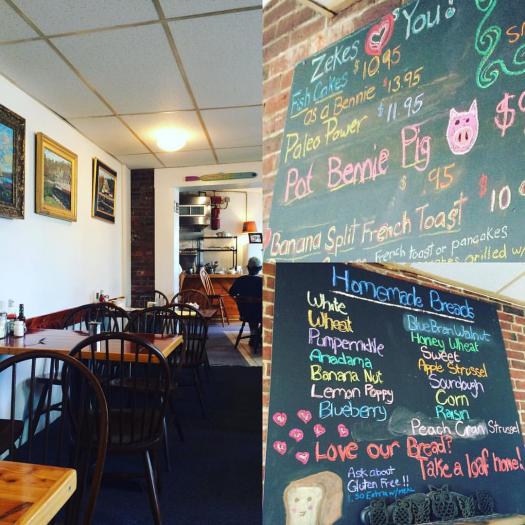 Zekes ♥'s You!
Fish Cakes $10.95
as a Bennie $13.95
Paleo Power $11.95
Pot Bennie Pig
$ .95
Banana Split French Toast $10
French toast or pancakes
grilled w/
Homemade Breads
White
Wheat
Pumpernickle
Anadama
Banana Nut
Lemon Poppy
Blueberry
Blue Bran Walnut
Honey Wheat
Sweet
Apple Strussel
Sourdough
Corn
Raisin
Peach Cran Strussel
Love our Bread?
Take a loaf home!
Ask about
Gluten Free!!
1.50 Extra w/meal